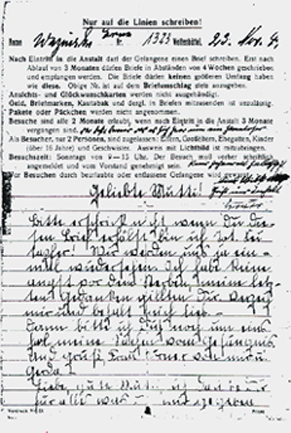 Nur auf die Linien schreiben!
Name Nr. 1323 Wolfenbüttel, 23. Nov. 4
Nach Eintritt in die Anstalt darf der Gefangene einen Brief schreiben. Erst nach
Ablauf von 3 Monaten dürfen Briefe in Abständen von 4 Wochen geschrieben
und empfangen werden. Die Briefe dürfen keinen größeren Umfang haben
wie diese. Obige Nr. ist auf dem Briefumschlag stets anzugeben.
Ansichts- und Glückwunschkarten werden nicht ausgehändigt.
Geld, Briefmarken, Kautabak und dergl. in Briefen mitzusenden ist unzulässig.
Pakete oder Päckchen werden nicht angenommen.
Besuche sind alle 2 Monate erlaubt, wenn nach Eintritt in die Anstalt 3 Monate
vergangen sind.
Als Besucher, nur 2 Personen, sind zugelassen: Eltern, Großeltern, Ehegatten, Kinder
(über 16 Jahre) und Geschwister. Ausweis mit Lichtbild ist mitzubringen.
Besuchszeit: Sonntags von 9—15 Uhr. Der Besuch muß vorher schriftlich
angemeldet und vom Vorstand genehmigt sein.
Zur Besuchen durch beurlaubte oder entlassene Gefangene wird gewarnt
Geliebte Mutti!
Bitte erschrick nicht wenn Du die-
sen Brief erhälst bin ich tot. Sei
tapfer! Wir werden uns ja ein-
mal wiedersehen. Ich habe keine
angst vor dem Sterben, meine letz-
ten Gedanken gillten Dir.
mir und behalt mich lieb.
Dann bitte ich Dich noch um eins
hol meine Sachen vom Gefängnis.
Und grüß Frau von mir u.
Gerda!
Liebe, gute Mutti ich danke Dir
für alles was